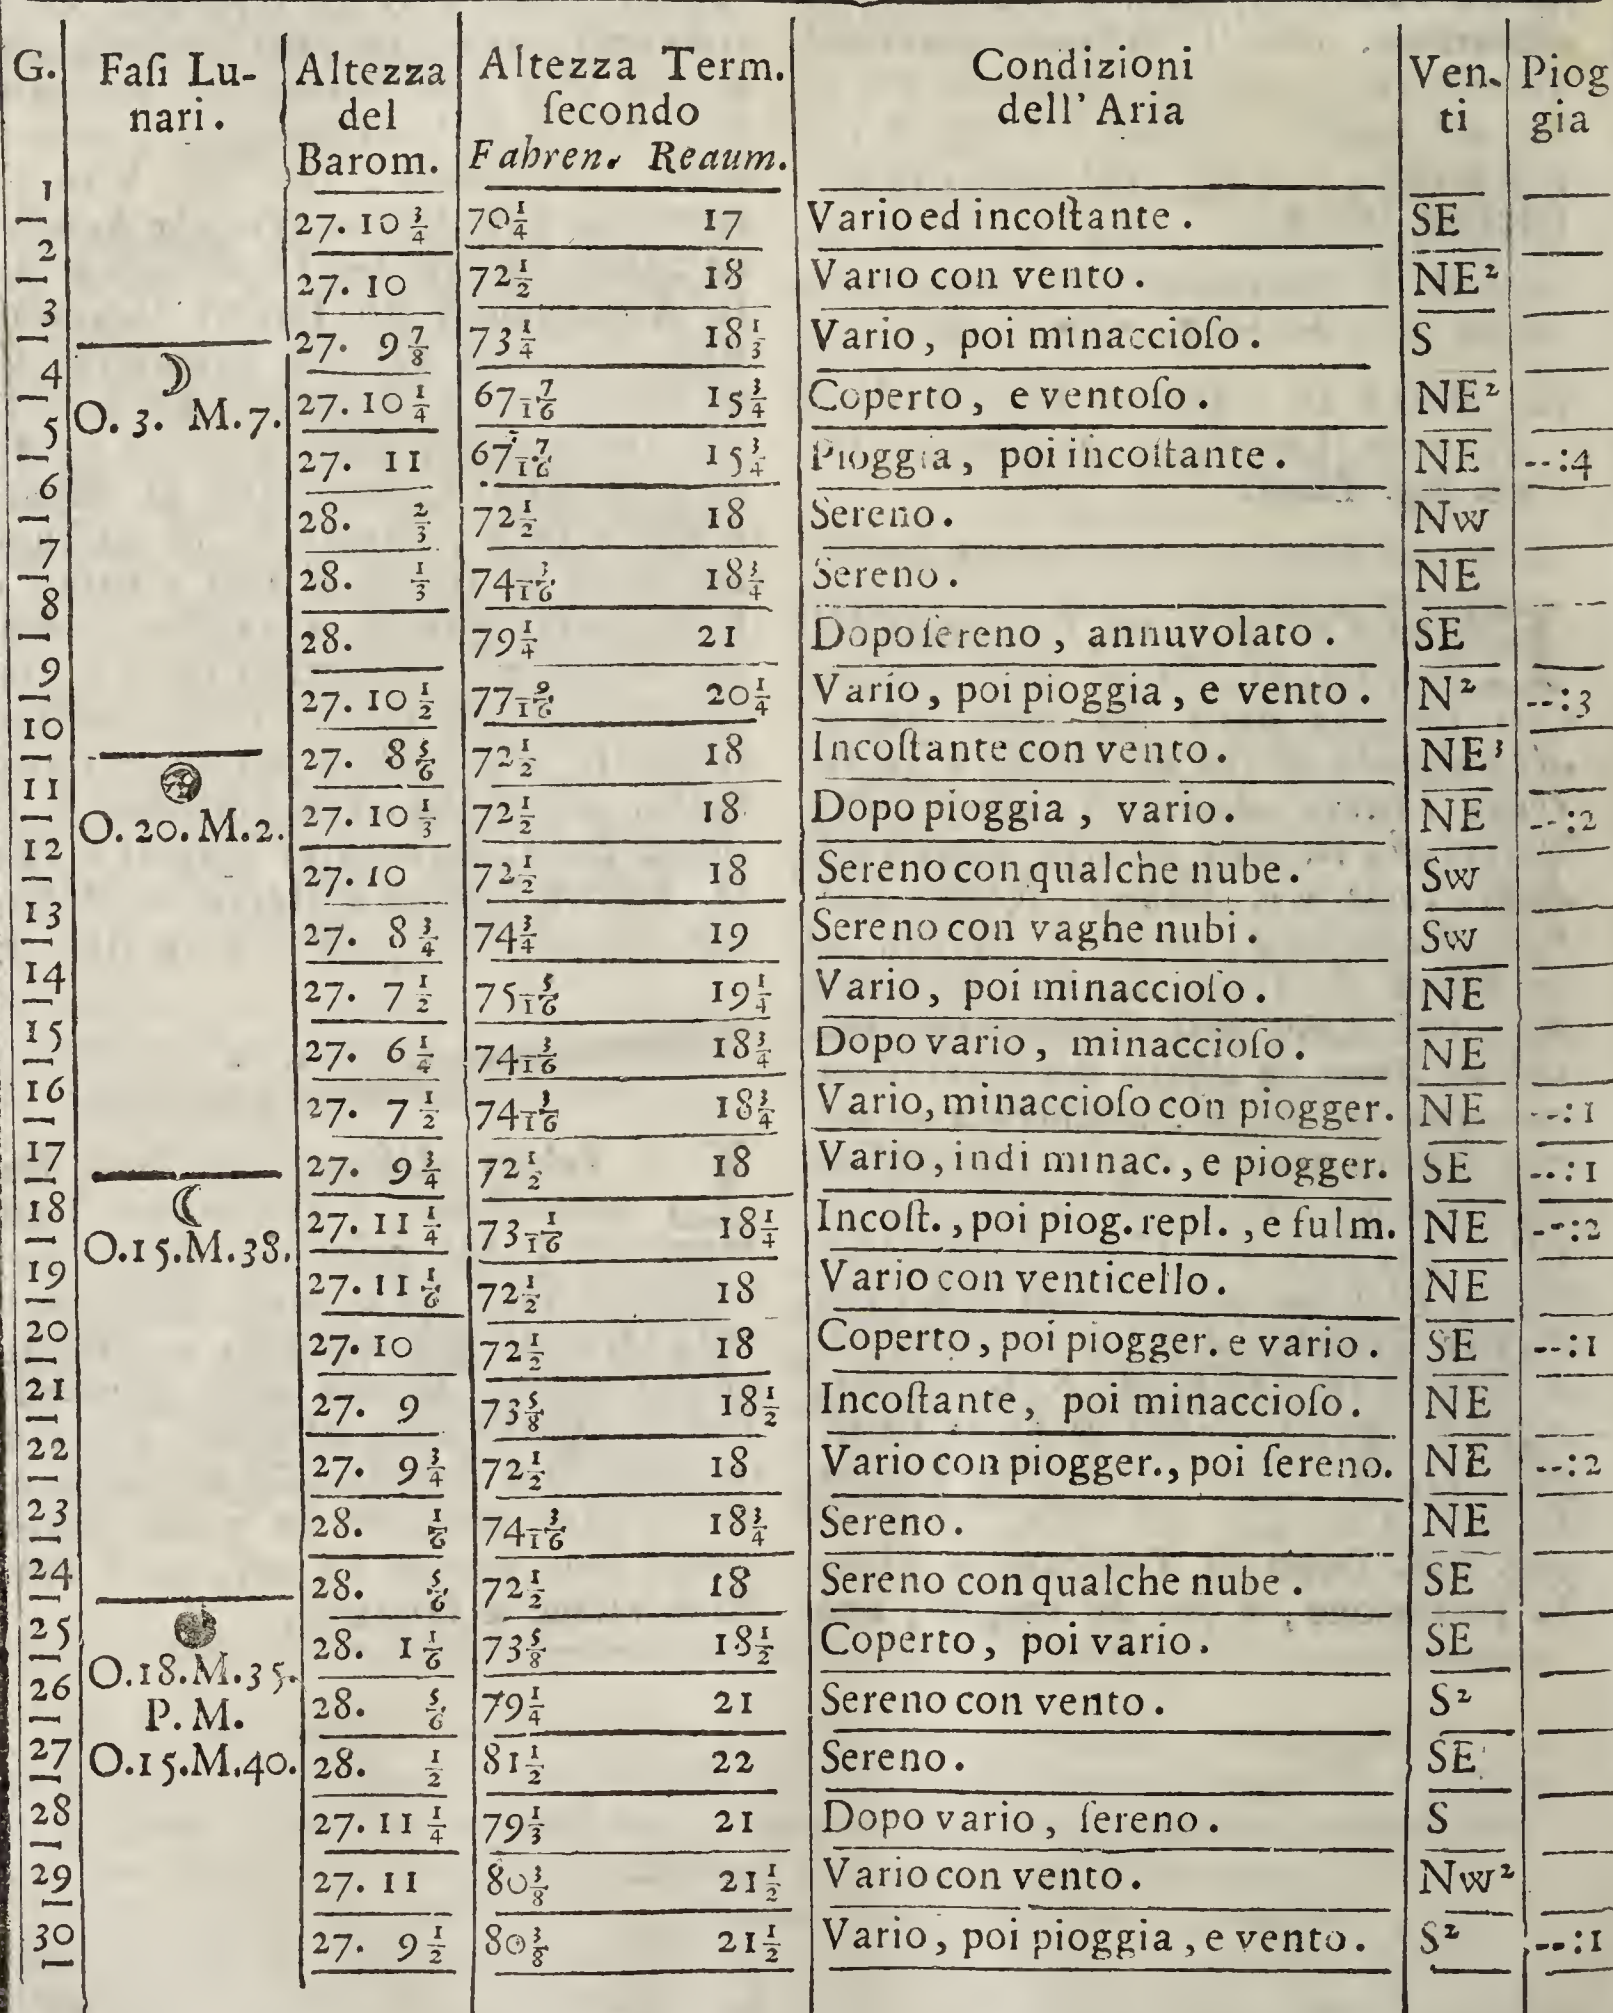 G. Faſi Lu- Altezza Altezza Term. Condizioni Ven. Piog
nari. del ſecondo dell'Aria ti gia
Barom. Fahren. Reaum.
1 27. 10 3/4 70 1/4 17 Vario ed incoſtante. SE
2 27. 10 72 1/2 18 Vario con vento. NE²
3 27. 9 7/8 73 1/4 18 1/3 Vario, poi minaccioſo. S
4 ☽ 27. 10 1/4 67 7/16 15 3/4 Coperto, e ventoſo. NE²
5 O. 3. M. 7. 27. 11 67 7/16 15 3/4 Pioggia, poi incoſtante. NE --:4
6 28. 2/3 72 1/2 18 Sereno. Nw
7 28. 1/3 74 3/16 18 3/4 Sereno. NE
8 28. 79 1/4 21 Dopo ſereno, annuvolato. SE
9 27. 10 1/2 77 9/16 20 1/4 Vario, poi pioggia, e vento. N² --:3
10 27. 8 5/6 72 1/2 18 Incoſtante con vento. NE³
11 O. 20. M. 2. 27. 10 1/3 72 1/2 18 Dopo pioggia, vario. NE --:2
12 27. 10 72 1/2 18 Sereno con qualche nube. Sw
13 27. 8 3/4 74 3/4 19 Sereno con vaghe nubi. Sw
14 27. 7 1/2 75 5/16 19 1/4 Vario, poi minaccioſo. NE
15 27. 6 1/4 74 3/16 18 3/4 Dopo vario, minaccioſo. NE
16 27. 7 1/2 74 3/16 18 3/4 Vario, minaccioſo con piogger. NE --:1
17 27. 9 3/4 72 1/2 18 Vario, indi minac., e piogger. SE --:1
18 ☾ O.15.M.38. 27. 11 1/4 73 1/16 18 1/4 Incoſt., poi piog. repl., e fulm. NE --:2
19 27. 11 1/6 72 1/2 18 Vario con venticello. NE
20 27. 10 72 1/2 18 Coperto, poi piogger. e vario. SE --:1
21 27. 9 73 5/8 18 1/2 Incoſtante, poi minaccioſo. NE
22 27. 9 3/4 72 1/2 18 Vario con piogger., poi ſereno. NE --:2
23 28. 1/6 74 3/16 18 3/4 Sereno. NE
24 28. 5/6 72 1/2 18 Sereno con qualche nube. SE
25 O.18.M.35. 28. 1 1/6 73 5/8 18 1/2 Coperto, poi vario. SE
26 P. M. 28. 5/6 79 1/4 21 Sereno con vento. S²
27 O.15.M.40. 28. 1/2 81 1/2 22 Sereno. SE
28 27. 11 1/4 79 1/3 21 Dopo vario, ſereno. S
29 27. 11 80 3/8 21 1/2 Vario con vento. Nw²
30 27. 9 1/2 80 3/8 21 1/2 Vario, poi pioggia, e vento. S² --:1